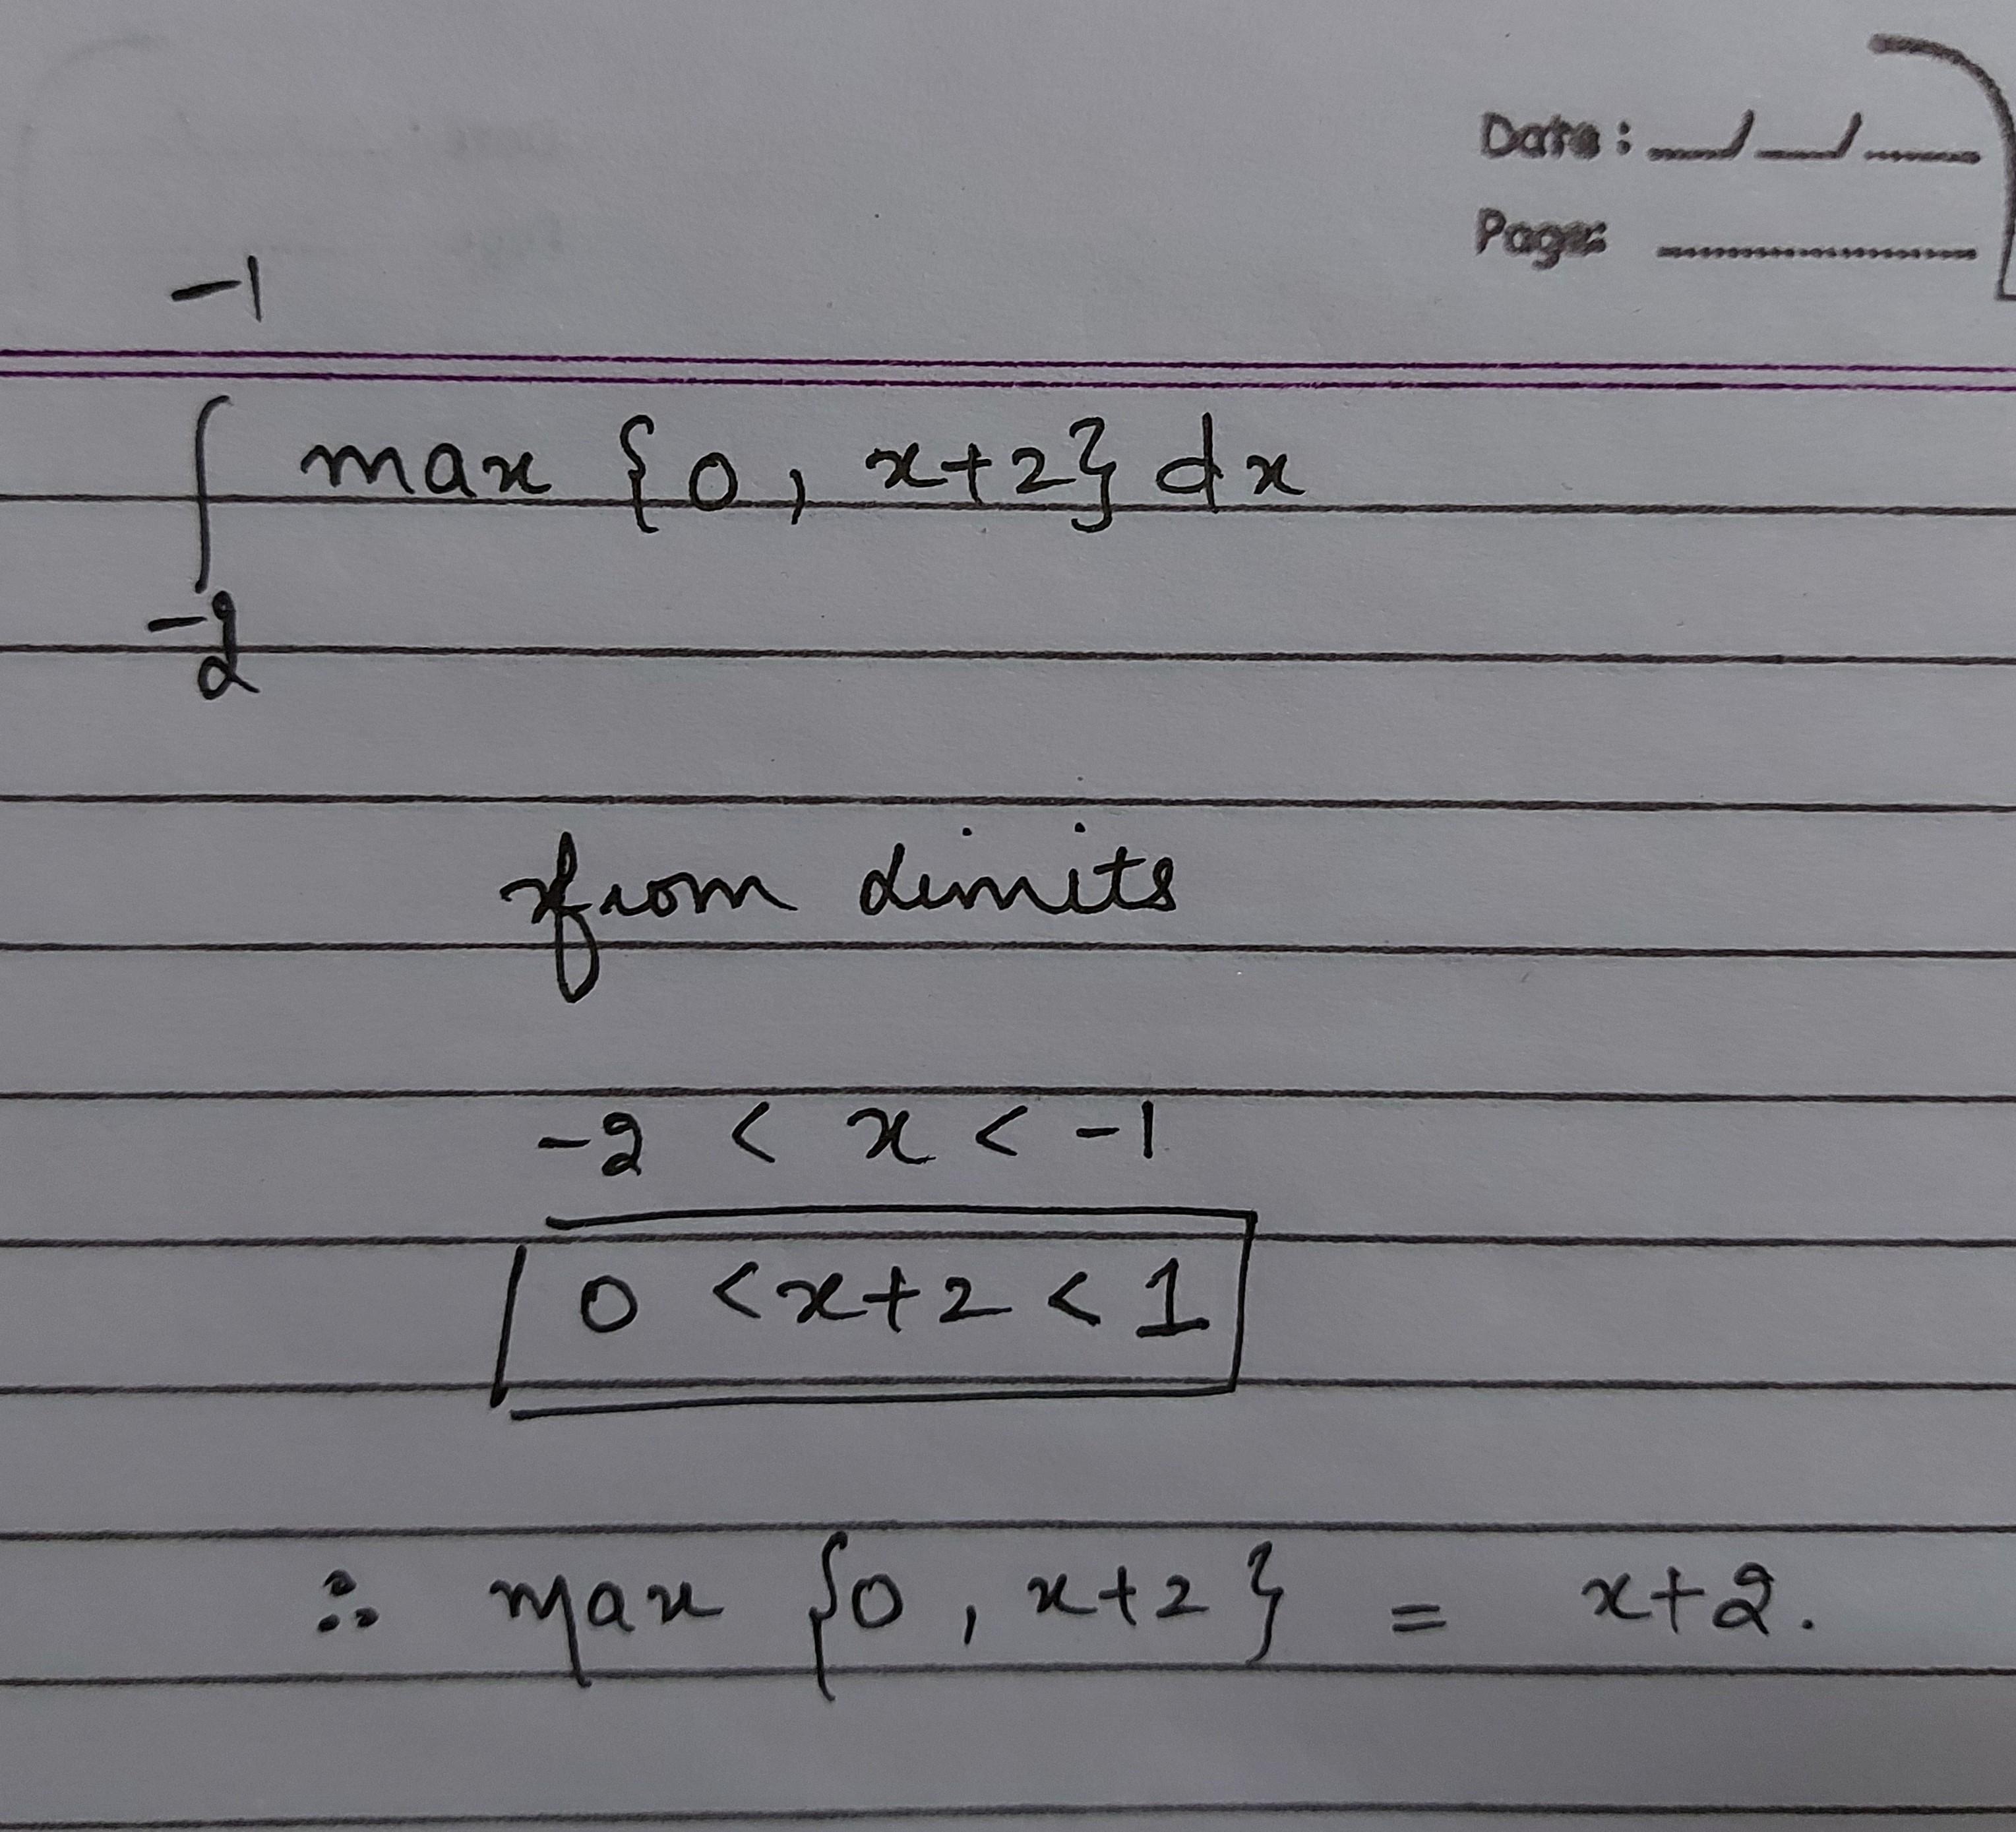 Date: __/__/____
Page: ________
-1
∫ max {0, x+2} dx
-2
from limits
-2 < x < -1
0 < x+2 < 1
∴ max {0, x+2} = x+2.